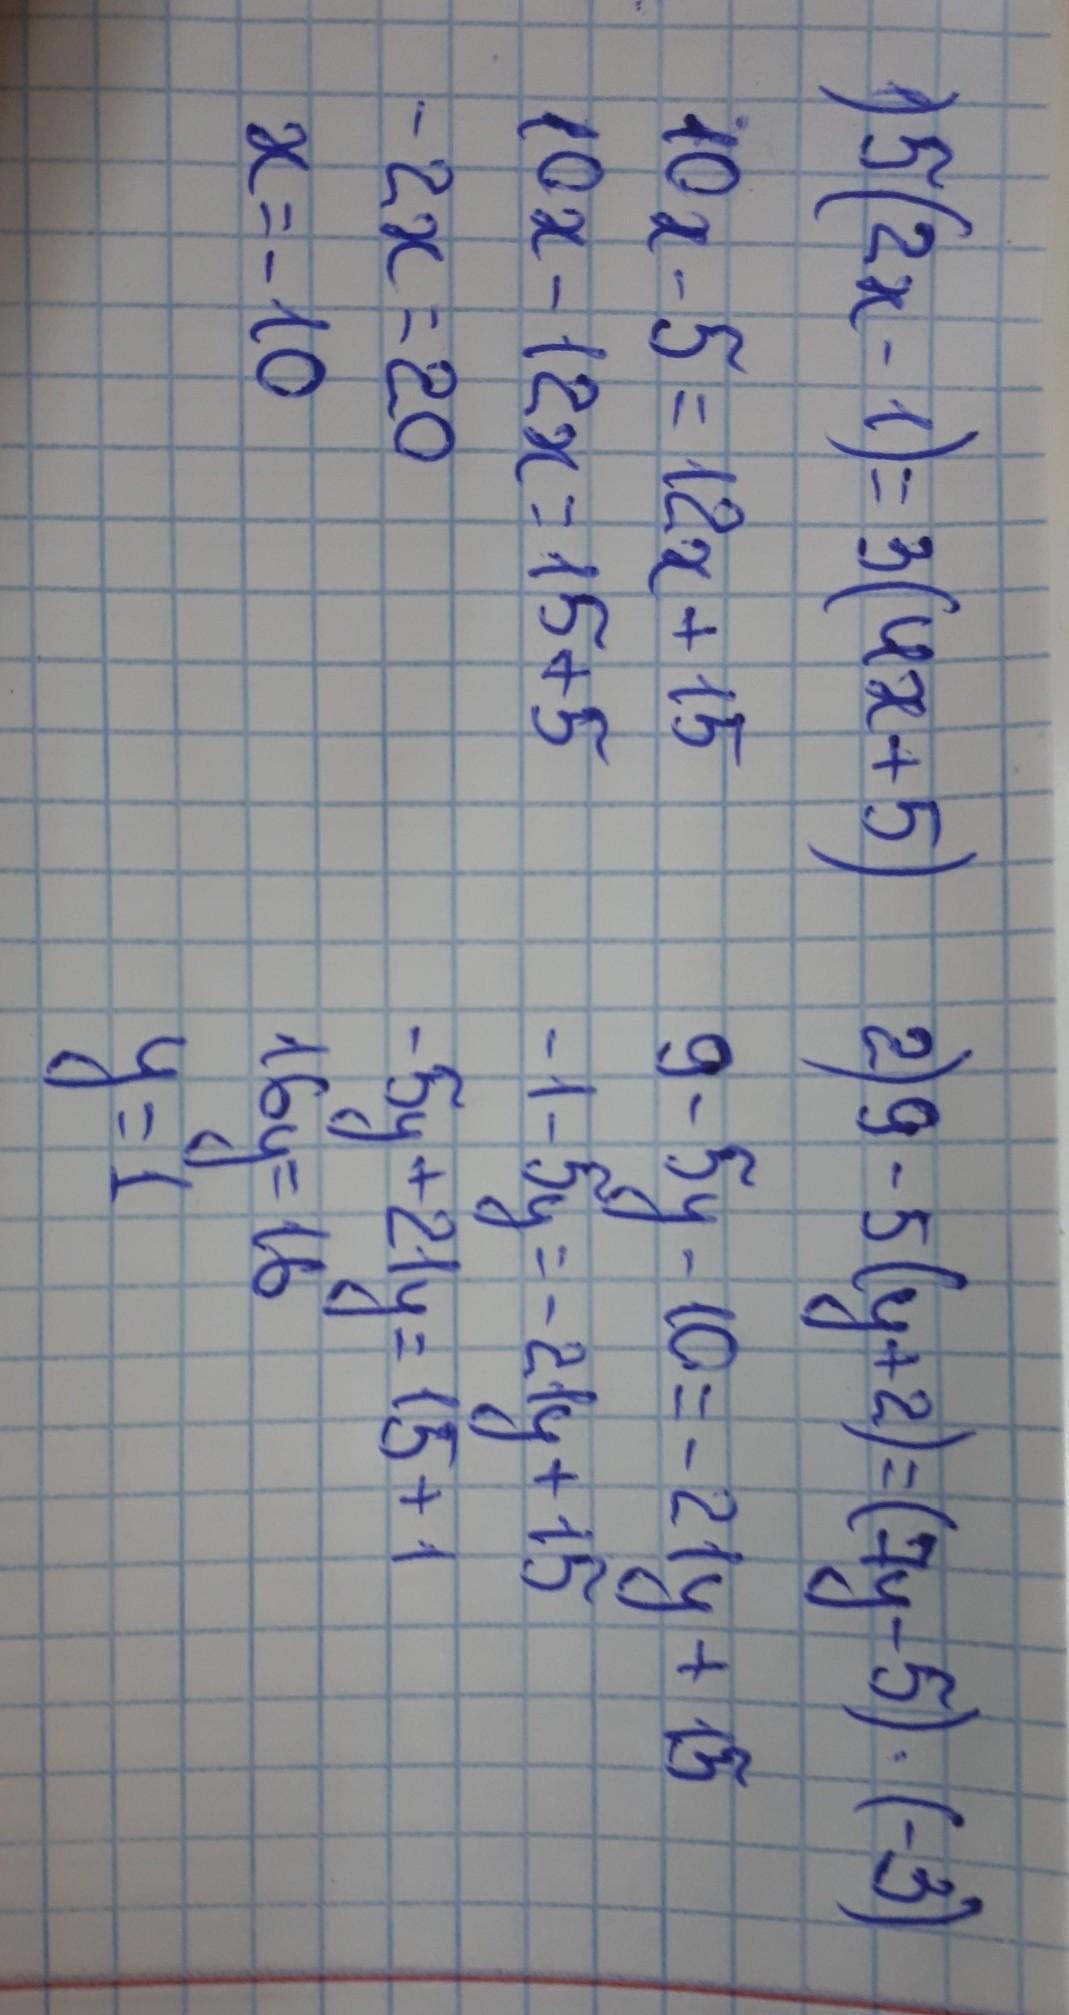 1) 5(2x - 1) = 3(4x + 5)
10x - 5 = 12x + 15
10x - 12x = 15 + 5
-2x = 20
x = -10
2) 9 - 5(y + 2) = (7y - 5) · (-3)
9 - 5y - 10 = -21y + 15
-1 - 5y = -21y + 15
-5y + 21y = 15 + 1
16y = 16
y = 1